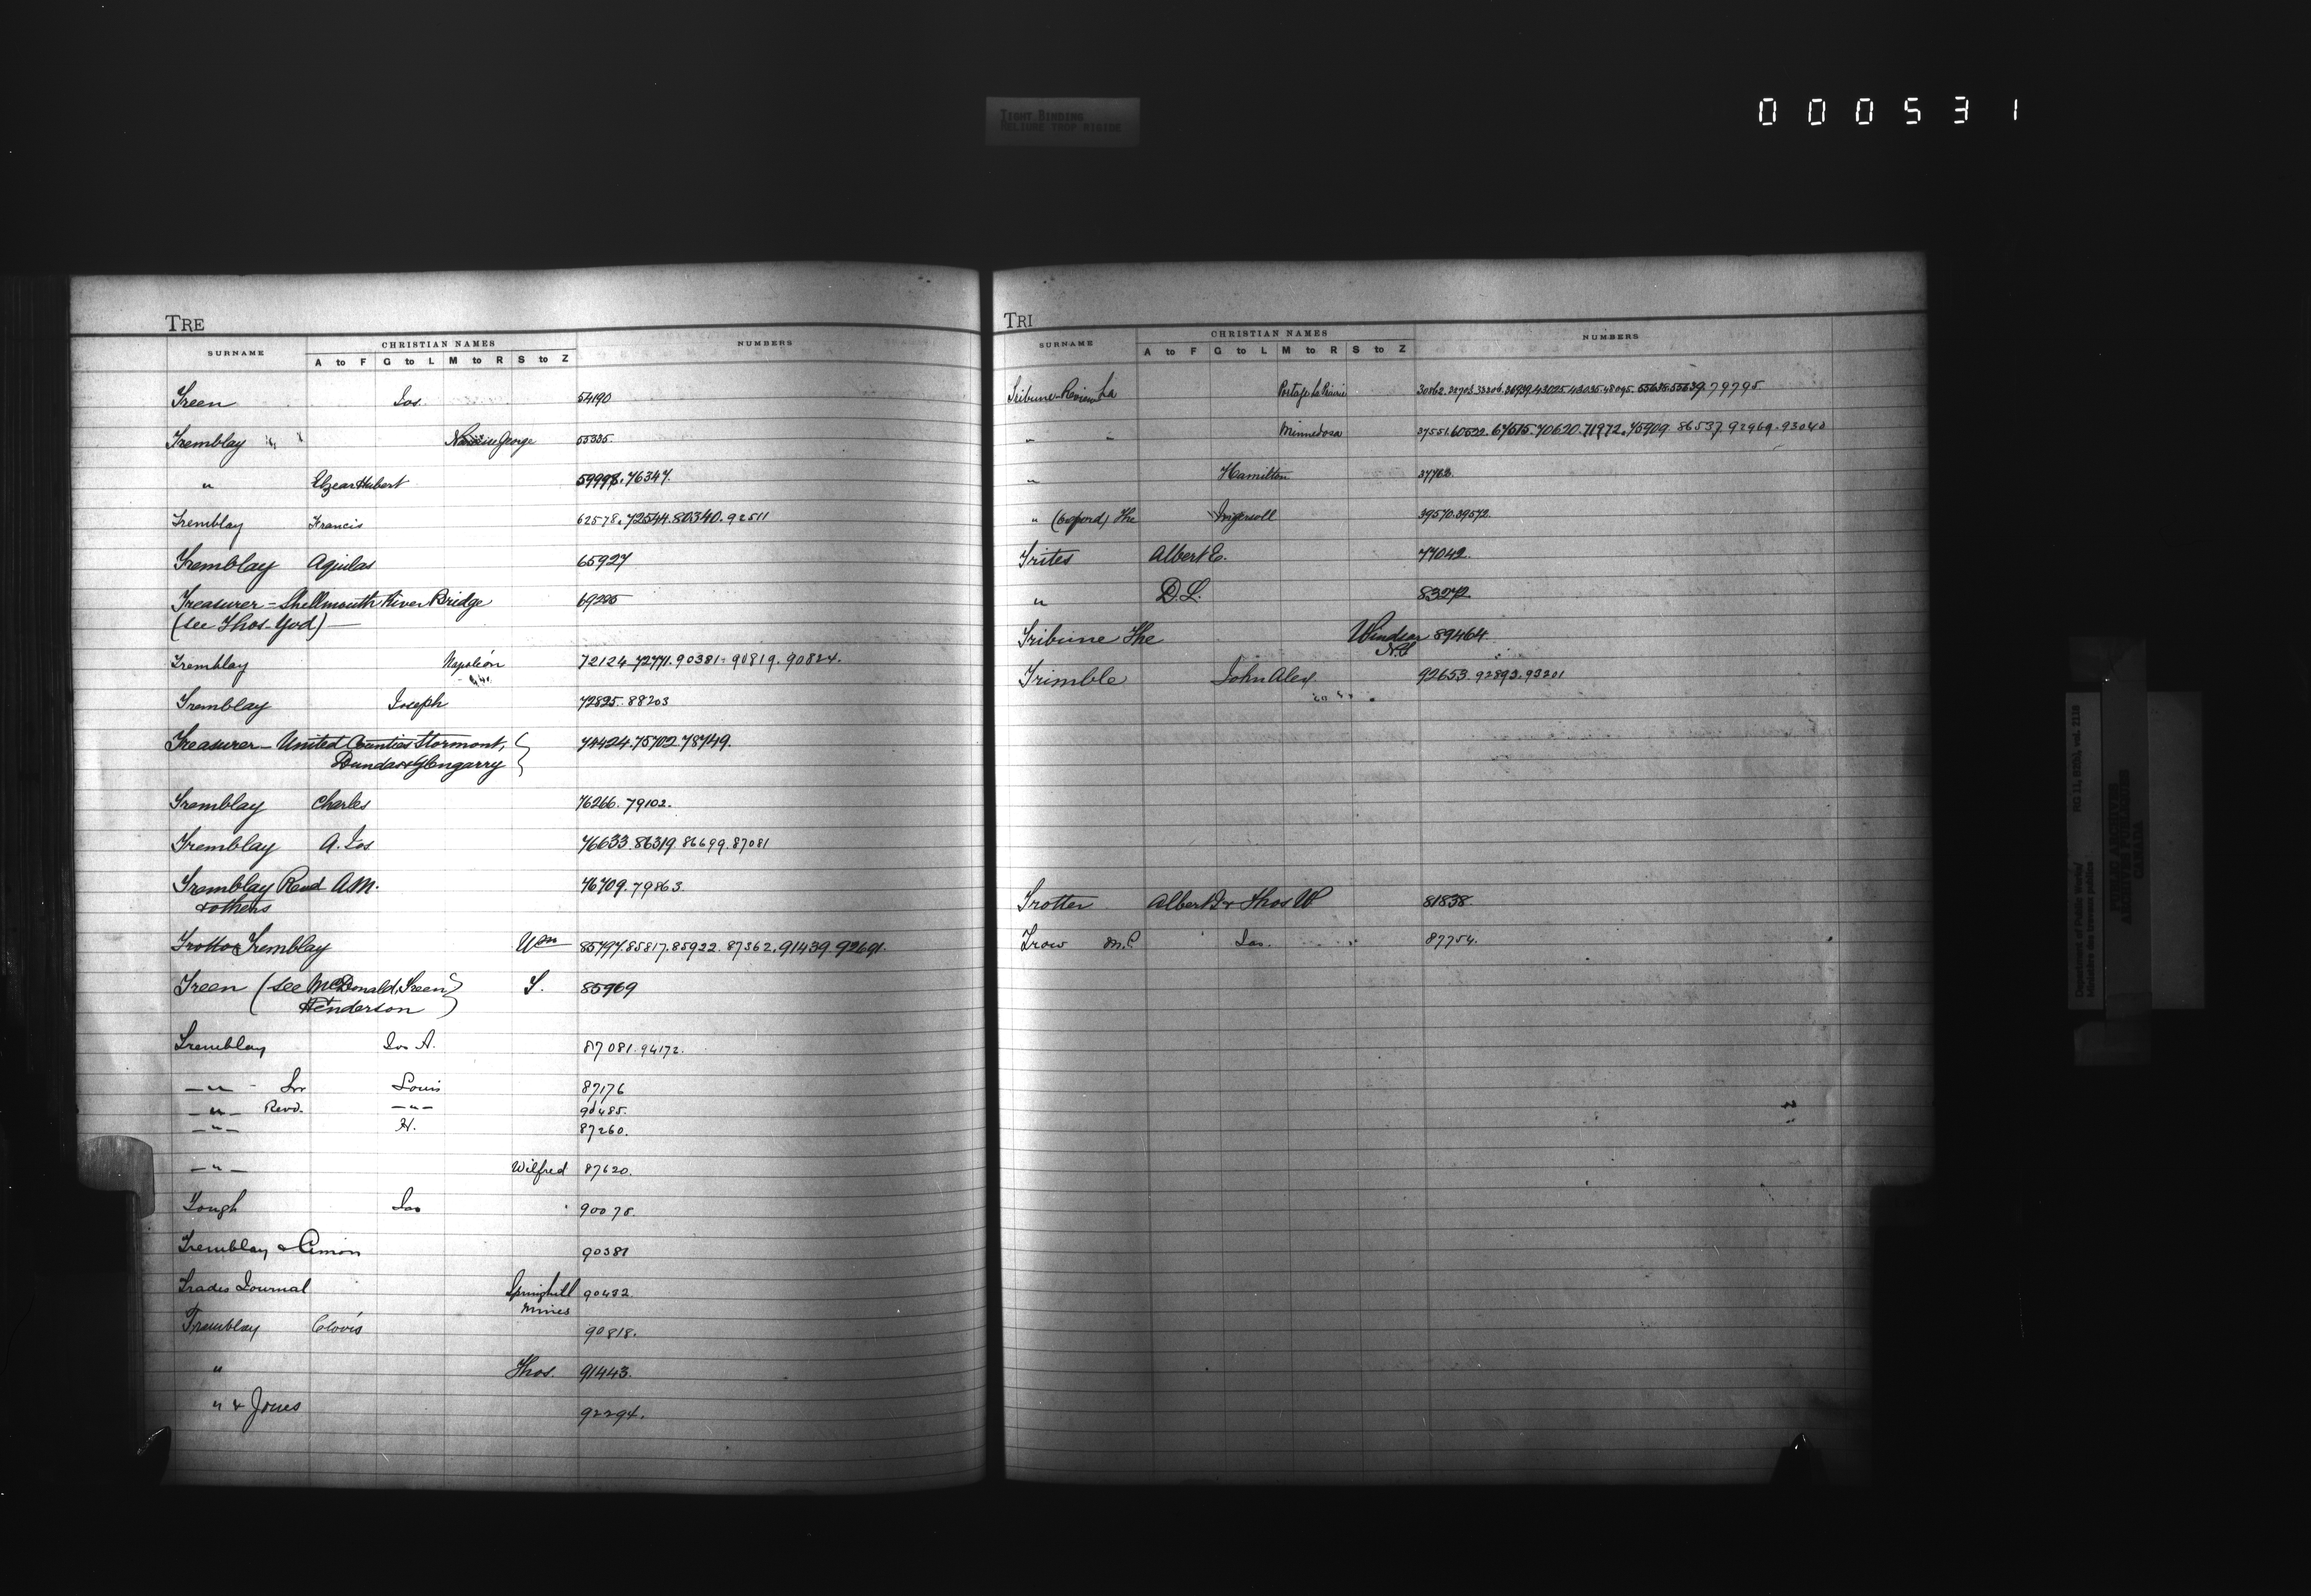 TIGHT BINDING
RELIURE TROP RIGIDE
000531
TRE
SURNAME CHRISTIAN NAMES NUMBERS
A to F G to L M to R S to Z
Treen Jos. 54190
Tremblay George 55335
" Elzear Hubert 59998. 76347.
Tremblay Francis 62578. 72544. 80340. 92511
Tremblay Aquilas 65927
Treasurer - Shellmouth River Bridge 69225
(see Thos. )
Tremblay Napoléon 72124. 72771. 90381. 90819. 90824.
Tremblay Joseph 72825. 88203
Treasurer - United Counties Stormont, 74424. 75702. 78749.
Dundas & Glengarry
Tremblay Charles 76266. 79102.
Tremblay A. Jos 76633. 86319. 86699. 87081
Tremblay Revd A.M. 76709. 79863.
& others
Trotto & Tremblay Wm 85797. 85817. 85922. 87362. 91439. 92691.
Treen (see McDonald, Treen S. 85969
& Henderson)
Tremblay Jos A. 87081. 94172.
— " — Snr Louis 87176
— " — Revd. — " — 90485.
— " — H. 87260.
— " — Wilfred 87620.
Tough Jas 90078.
Tremblay & Cimon 90381
Trades Journal Springhill 90482
Mines
Tremblay Clovis 90818.
" Thos. 91443.
" & Jones 92294.
TRI
SURNAME CHRISTIAN NAMES NUMBERS
A to F G to L M to R S to Z
Tribune-Review La Portage La Prairie 30862. 43025. 43035. 48095. 55638. 55639. 79795
" " Minnedosa 37551. 60522. 67615. 70620. 71972. 75909. 86537. 92969. 93040
" Hamilton 37782
" (Oxford) The Ingersoll 39570. 39572.
Trites Albert E. 77042.
" D.L. 83272
Tribune The Windsor 89464
N.S
Trimble John Alex 92653. 92893. 93201
Trotter Albert J & Thos W 81838.
Trow M.P Jas. 87754.
Department of Public Works/ RG 11, B2(b), vol. 2119
Ministère des travaux publics
PUBLIC ARCHIVES
ARCHIVES PUBLIQUES
CANADA